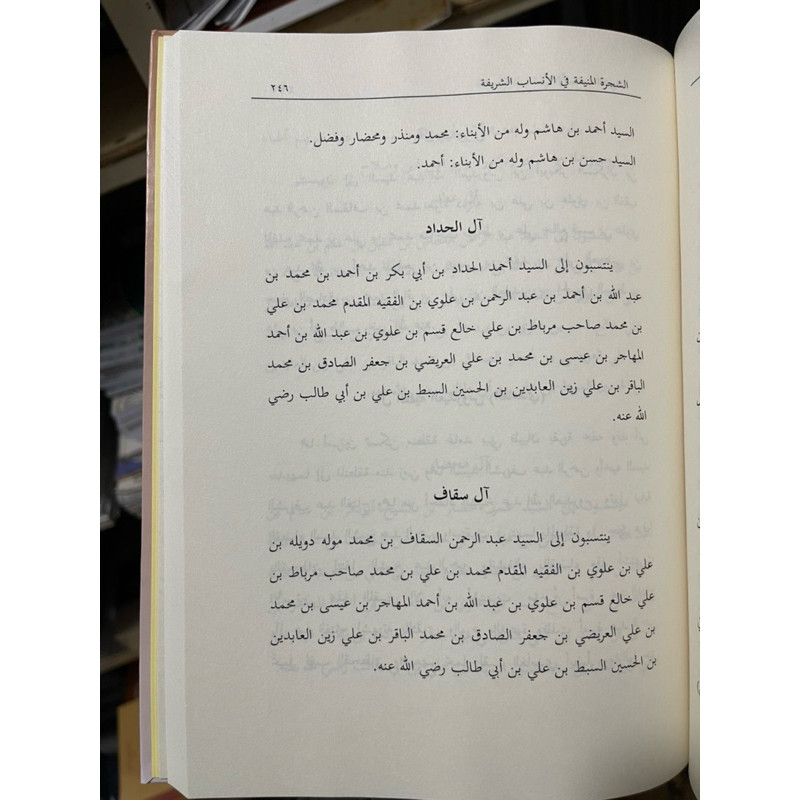 الشجرة المنيفة في الأنساب الشريفة ٢٤٦
السيد أحمد بن هاشم وله من الأبناء: محمد ومنذر ومحضار وفضل.
السيد حسن بن هاشم وله من الأبناء: أحمد.
آل الحداد
ينتسبون إلى السيد أحمد الحداد بن أبي بكر بن أحمد بن محمد بن
عبد الله بن أحمد بن عبد الرحمن بن علوي بن الفقيه المقدم محمد بن علي
بن محمد صاحب مرباط بن علي خالع قسم بن علوي بن عبد الله بن أحمد
المهاجر بن عيسى بن محمد بن علي العريضي بن جعفر الصادق بن محمد
الباقر بن علي زين العابدين بن الحسين السبط بن علي بن أبي طالب رضي
الله عنه.
آل سقاف
ينتسبون إلى السيد عبد الرحمن السقاف بن محمد موله دويله بن
علي بن علوي بن الفقيه المقدم محمد بن علي بن محمد صاحب مرباط بن
علي خالع قسم بن علوي بن عبد الله بن أحمد المهاجر بن عيسى بن محمد
بن علي العريضي بن جعفر الصادق بن محمد الباقر بن علي زين العابدين
بن الحسين السبط بن علي بن أبي طالب رضي الله عنه.